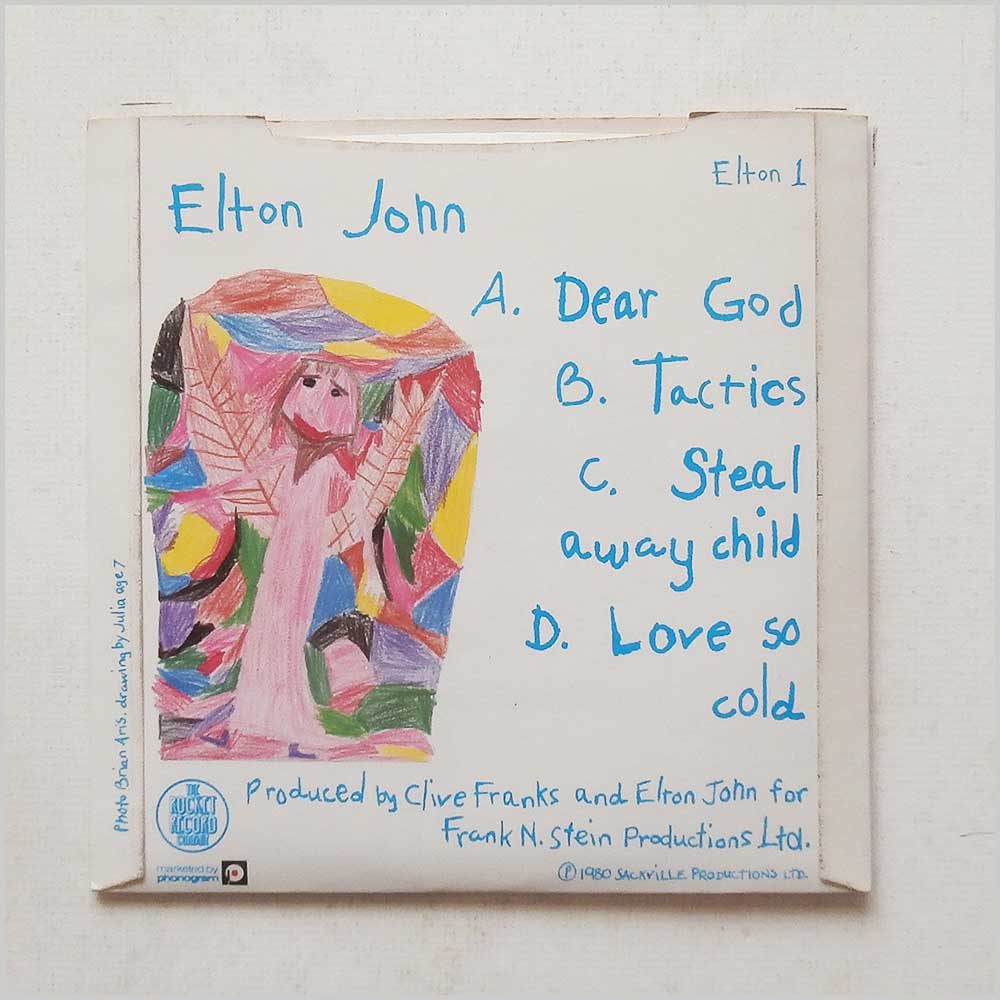 Elton 1
Elton John
A. Dear God
B. Tactics
C. Steal
away child
D. Love so
cold
Photo Brian Aris. drawing by Julia age 7
THE
ROCKET
RECORD
COMPANY
Produced by Clive Franks and Elton John for
Frank N. Stein Productions Ltd.
marketed by
phonogram
Ⓟ 1980 SACKVILLE PRODUCTIONS LTD.